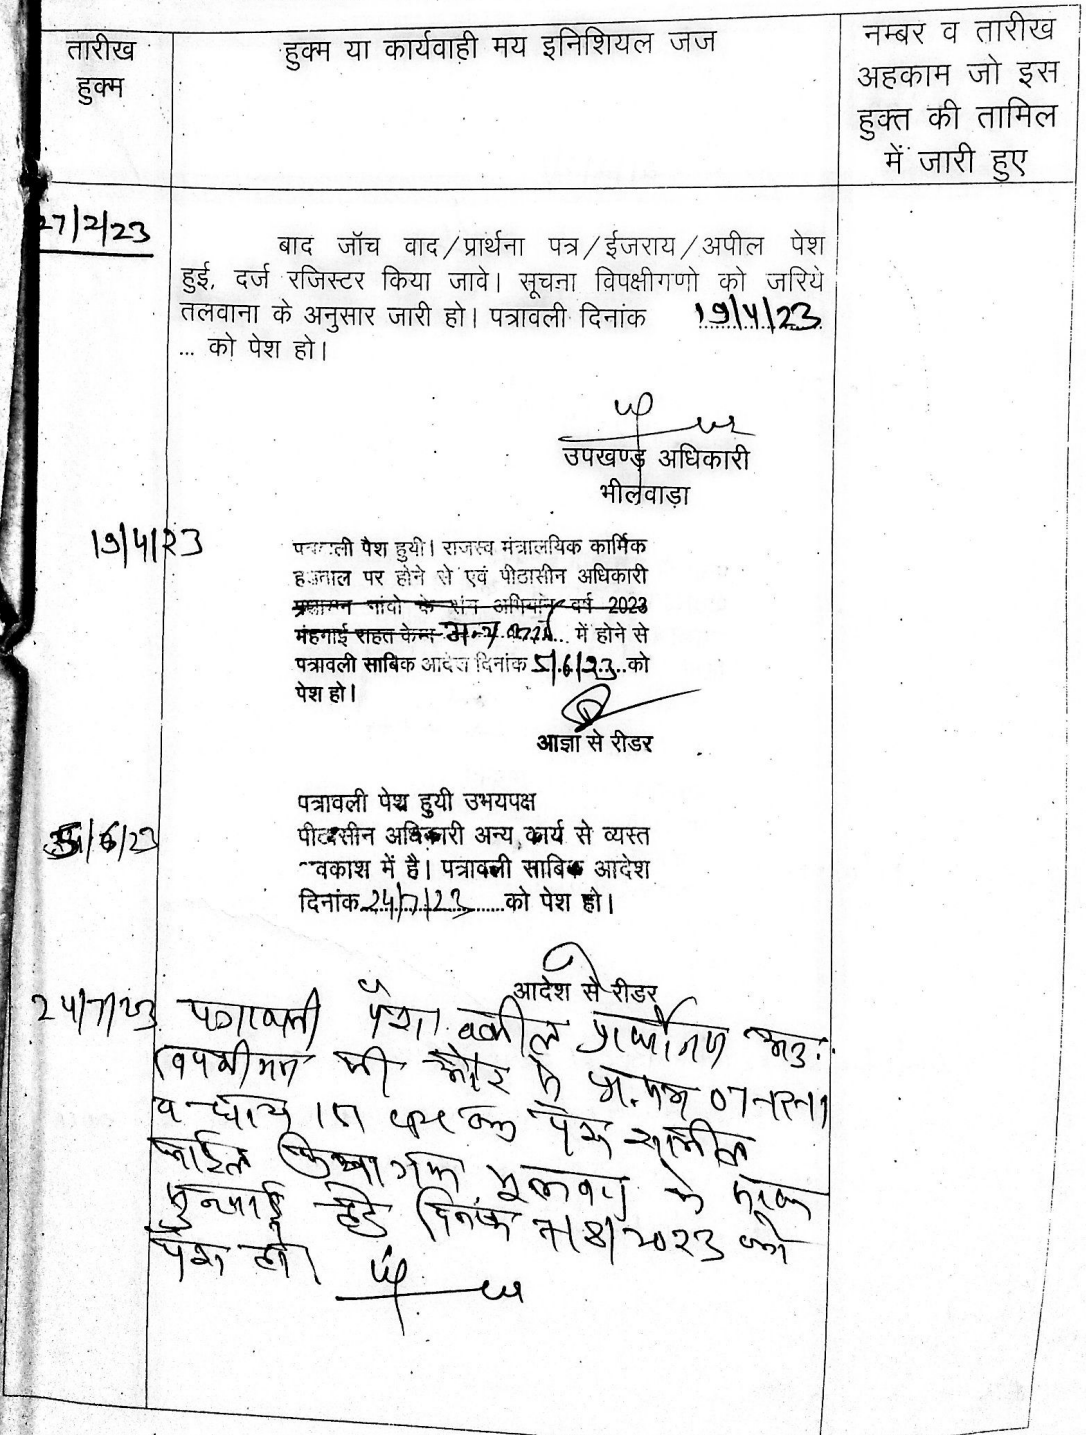 तारीख
हुक्म
हुक्म या कार्यवाही मय इनिशियल जज
नम्बर व तारीख
अहकाम जो इस
हुक्त की तामिल
में जारी हुए
27/2/23
बाद जॉच वाद/प्रार्थना पत्र/ईजराय/अपील पेश
हुई, दर्ज रजिस्टर किया जावे। सूचना विपक्षीगणो को जरिये
तलवाना के अनुसार जारी हो। पत्रावली दिनांक 19/4/23
... को पेश हो।
उपखण्ड अधिकारी
भीलवाड़ा
19/4/23
पत्रावली पैश हुयी। राजस्व मंत्रालयिक कार्मिक
हड़ताल पर होने से एवं पीठासीन अधिकारी
प्रशासन गांवो के संग अभियान वर्ष 2023
मंहगाई राहत केम्प अन्य कार्य में होने से
पत्रावली साबिक आदेश दिनांक 5/6/23 को
पेश हो।
आज्ञा से रीडर
5/6/23
पत्रावली पेश हुयी उभयपक्ष
पीठासीन अधिकारी अन्य कार्य से व्यस्त
वकाश में है। पत्रावली साबिक आदेश
दिनांक 24/7/23 को पेश हो।
आदेश से रीडर
24/7/23 पत्रावली पेश। वकील प्रार्थीगण
की और से 07
व धारा पेश
दिनांक 7/8/2023 को
पेश हो।